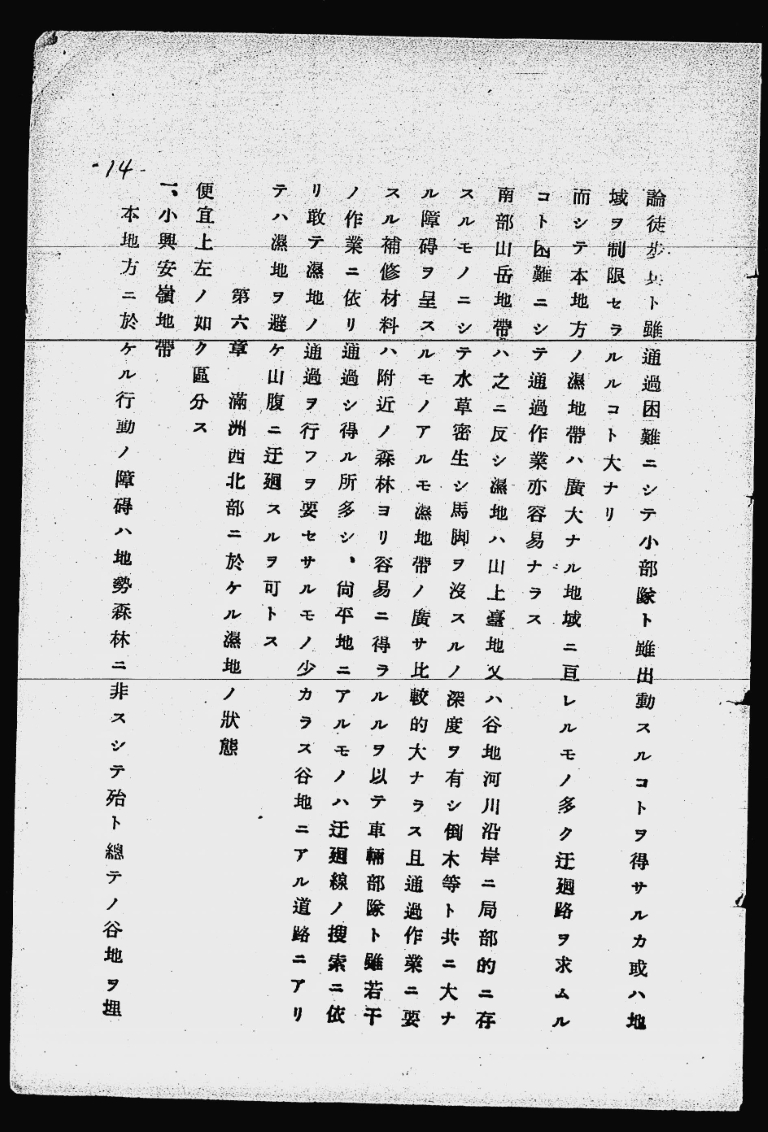 -14-
論徒步兵ト雖通過困難ニシテ小部隊ト雖出動スルコトヲ得サルカ或ハ地
域ヲ制限セラルルコト大ナリ
而シテ本地方ノ濕地帶ハ廣大ナル地域ニ亘レルモノ多ク迂廻路ヲ求ムル
コト困難ニシテ通過作業亦容易ナラス
南部山岳地帶ハ之ニ反シ濕地ハ山上臺地又ハ谷地河川沿岸ニ局部的ニ存
スルモノニシテ水草密生シ馬脚ヲ沒スルノ深度ヲ有シ倒木等ト共ニ大ナ
ル障碍ヲ呈スルモノアルモ濕地帶ノ廣サ比較的大ナラス且通過作業ニ要
スル補修材料ハ附近ノ森林ヨリ容易ニ得ラルルヲ以テ車輛部隊ト雖若干
ノ作業ニ依リ通過シ得ル所多シ、尙平地ニアルモノハ迂廻線ノ搜索ニ依
リ敢テ濕地ノ通過ヲ行フヲ要セサルモノ少カラス谷地ニアル道路ニアリ
テハ濕地ヲ避ケ山腹ニ迂廻スルヲ可トス
第六章 滿洲西北部ニ於ケル濕地ノ狀態
便宜上左ノ如ク區分ス
一、小興安嶺地帶
本地方ニ於ケル行動ノ障碍ハ地勢森林ニ非スシテ殆ト總テノ谷地ヲ埋